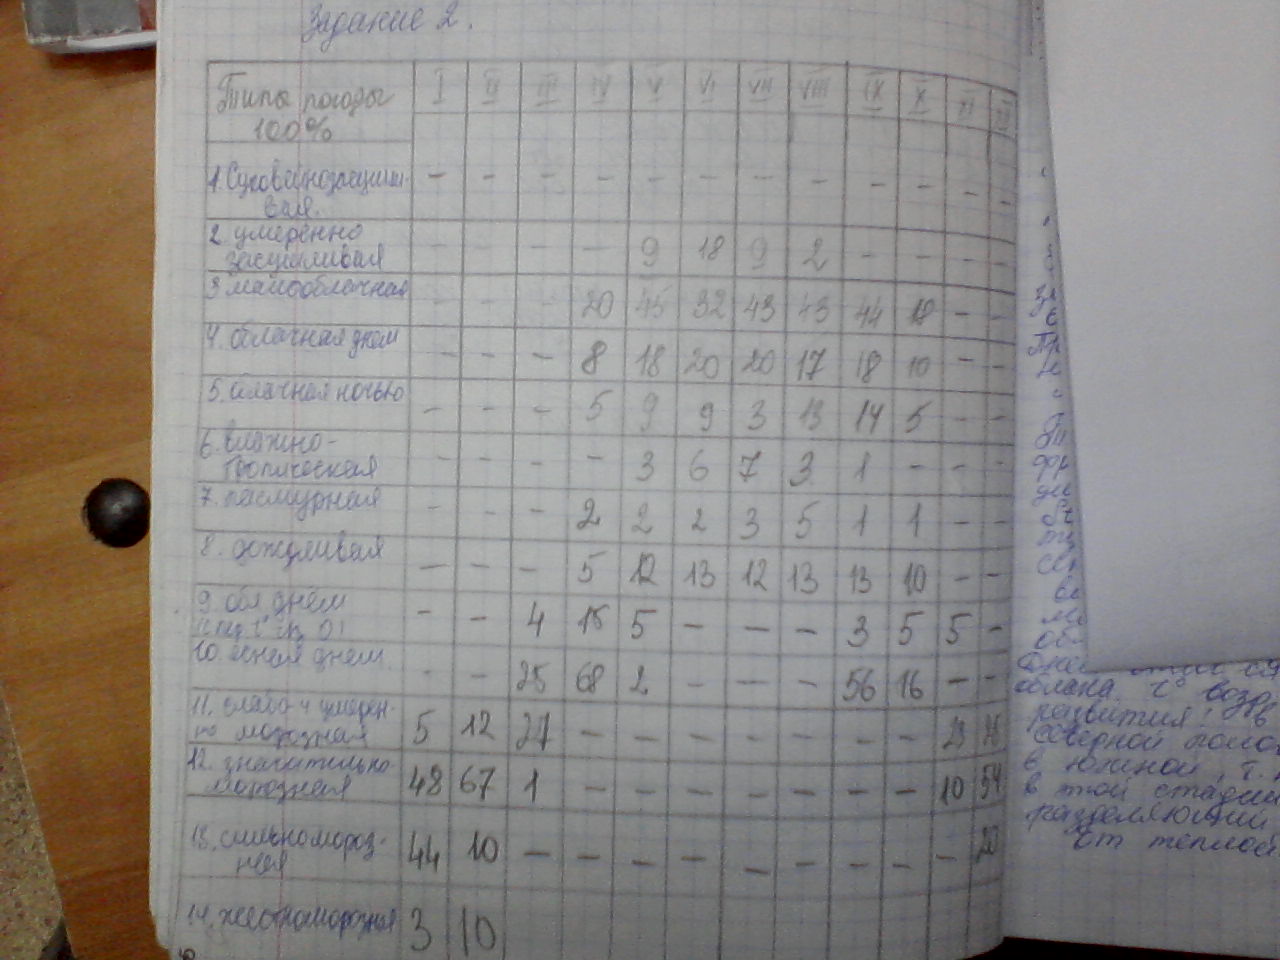 Задание 2.
Типы погоды I II III IV V VI VII VIII IX X XI XII
100%
1. Суховейнозасушли- - - - - - - - - - - - -
вая.
2. умеренно
засушливая - - - - 9 18 9 2 - - - -
3 малооблачная - - - 20 45 32 43 43 44 18 - -
4. облачная днем - - - 8 18 20 20 17 18 10 - -
5. облачная ночью - - - 5 9 9 3 13 14 5 - -
6. влажно-
тропическая - - - - 3 6 7 3 1 - - -
7. пасмурная - - - 2 2 2 3 5 1 1 - -
8. дождливая - - - 5 12 13 12 13 13 10 - -
9. обл. днём - - 4 15 5 - - - 3 5 5 -
10. ясная днем - - 25 68 2 - - - 56 16 - -
11. слабо и умерен-
но морозная 5 12 27 - - - - - - -
12. значительно-
морозная 48 67 1 - - - - - - - 10 54
13. сильномороз- 44 10 - - - - - - - - - 20
ная
14. жестокоморозная 3 10
облака с
развития. в
северной
в южной, т.
в той стадии
разделяющий
от теплой